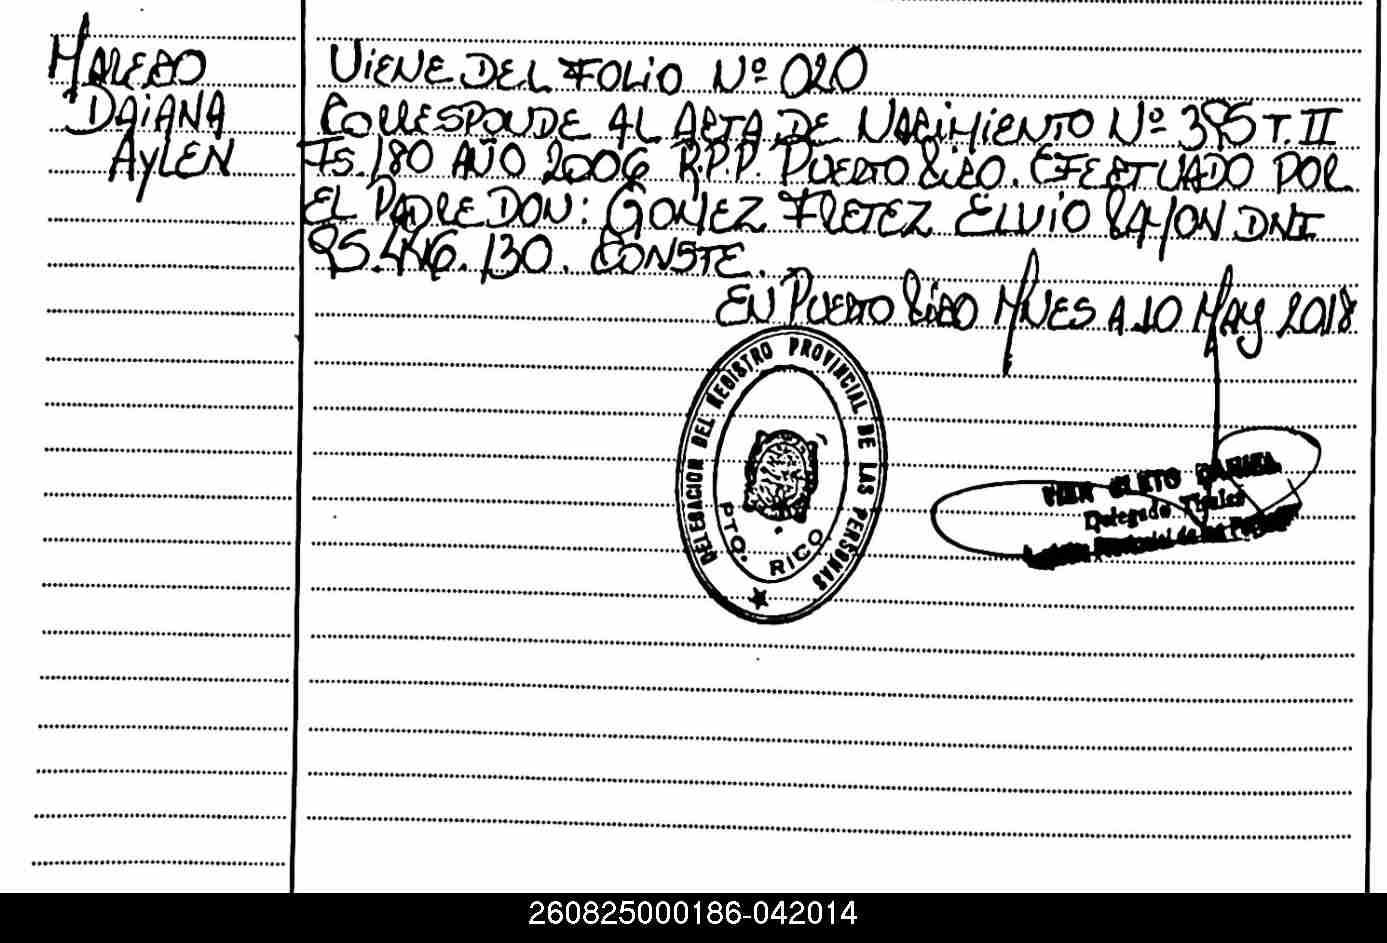 MAREBO
DAIANA
AYLEN
VIENE DEL FOLIO Nº 020
CORRESPONDE AL ACTA DE NACIMIENTO Nº 395 T. II
Fs. 180 AÑO 2006 R.P.P. PUERTO RICO. EFECTUADO POR
EL PADRE DON: GOMEZ FLETEZ ELVIO RAMON DNI
95.446.130. CONSTE.
EN PUERTO RICO MNES A 10 MAY 2018
DELEGACION DEL REGISTRO PROVINCIAL DE LAS PERSONAS
PTO. RICO
Delegado Titular
Provincial de las
260825000186-042014